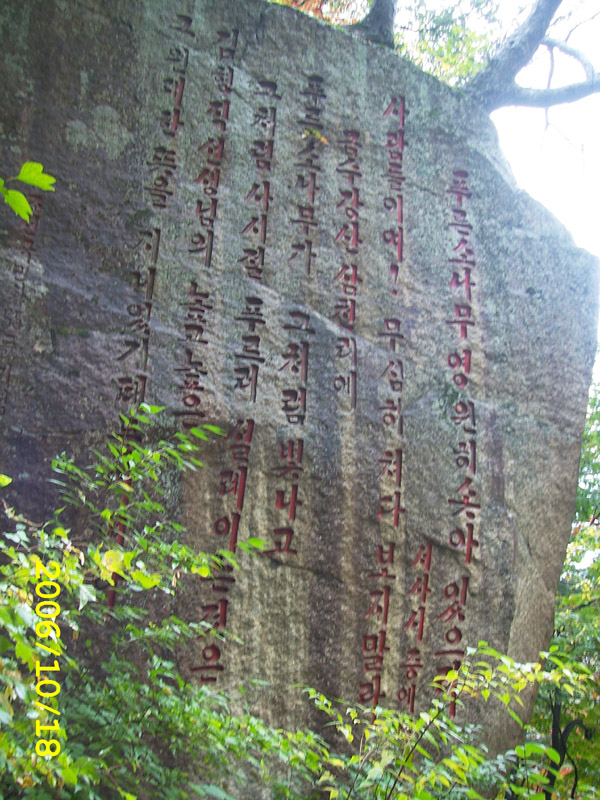 푸른소나무 영원히 솟아 있으라
서사시 중에
사람들이여! 무심히 쳐다 보지말라
금수강산 삼천리에
푸른소나무가 그처럼 빛나고
그처럼 사시절 푸르러 설레이는것은
김형직선생님의 높고높은
그 위대한 뜻을 지니였기때
2006/10/18